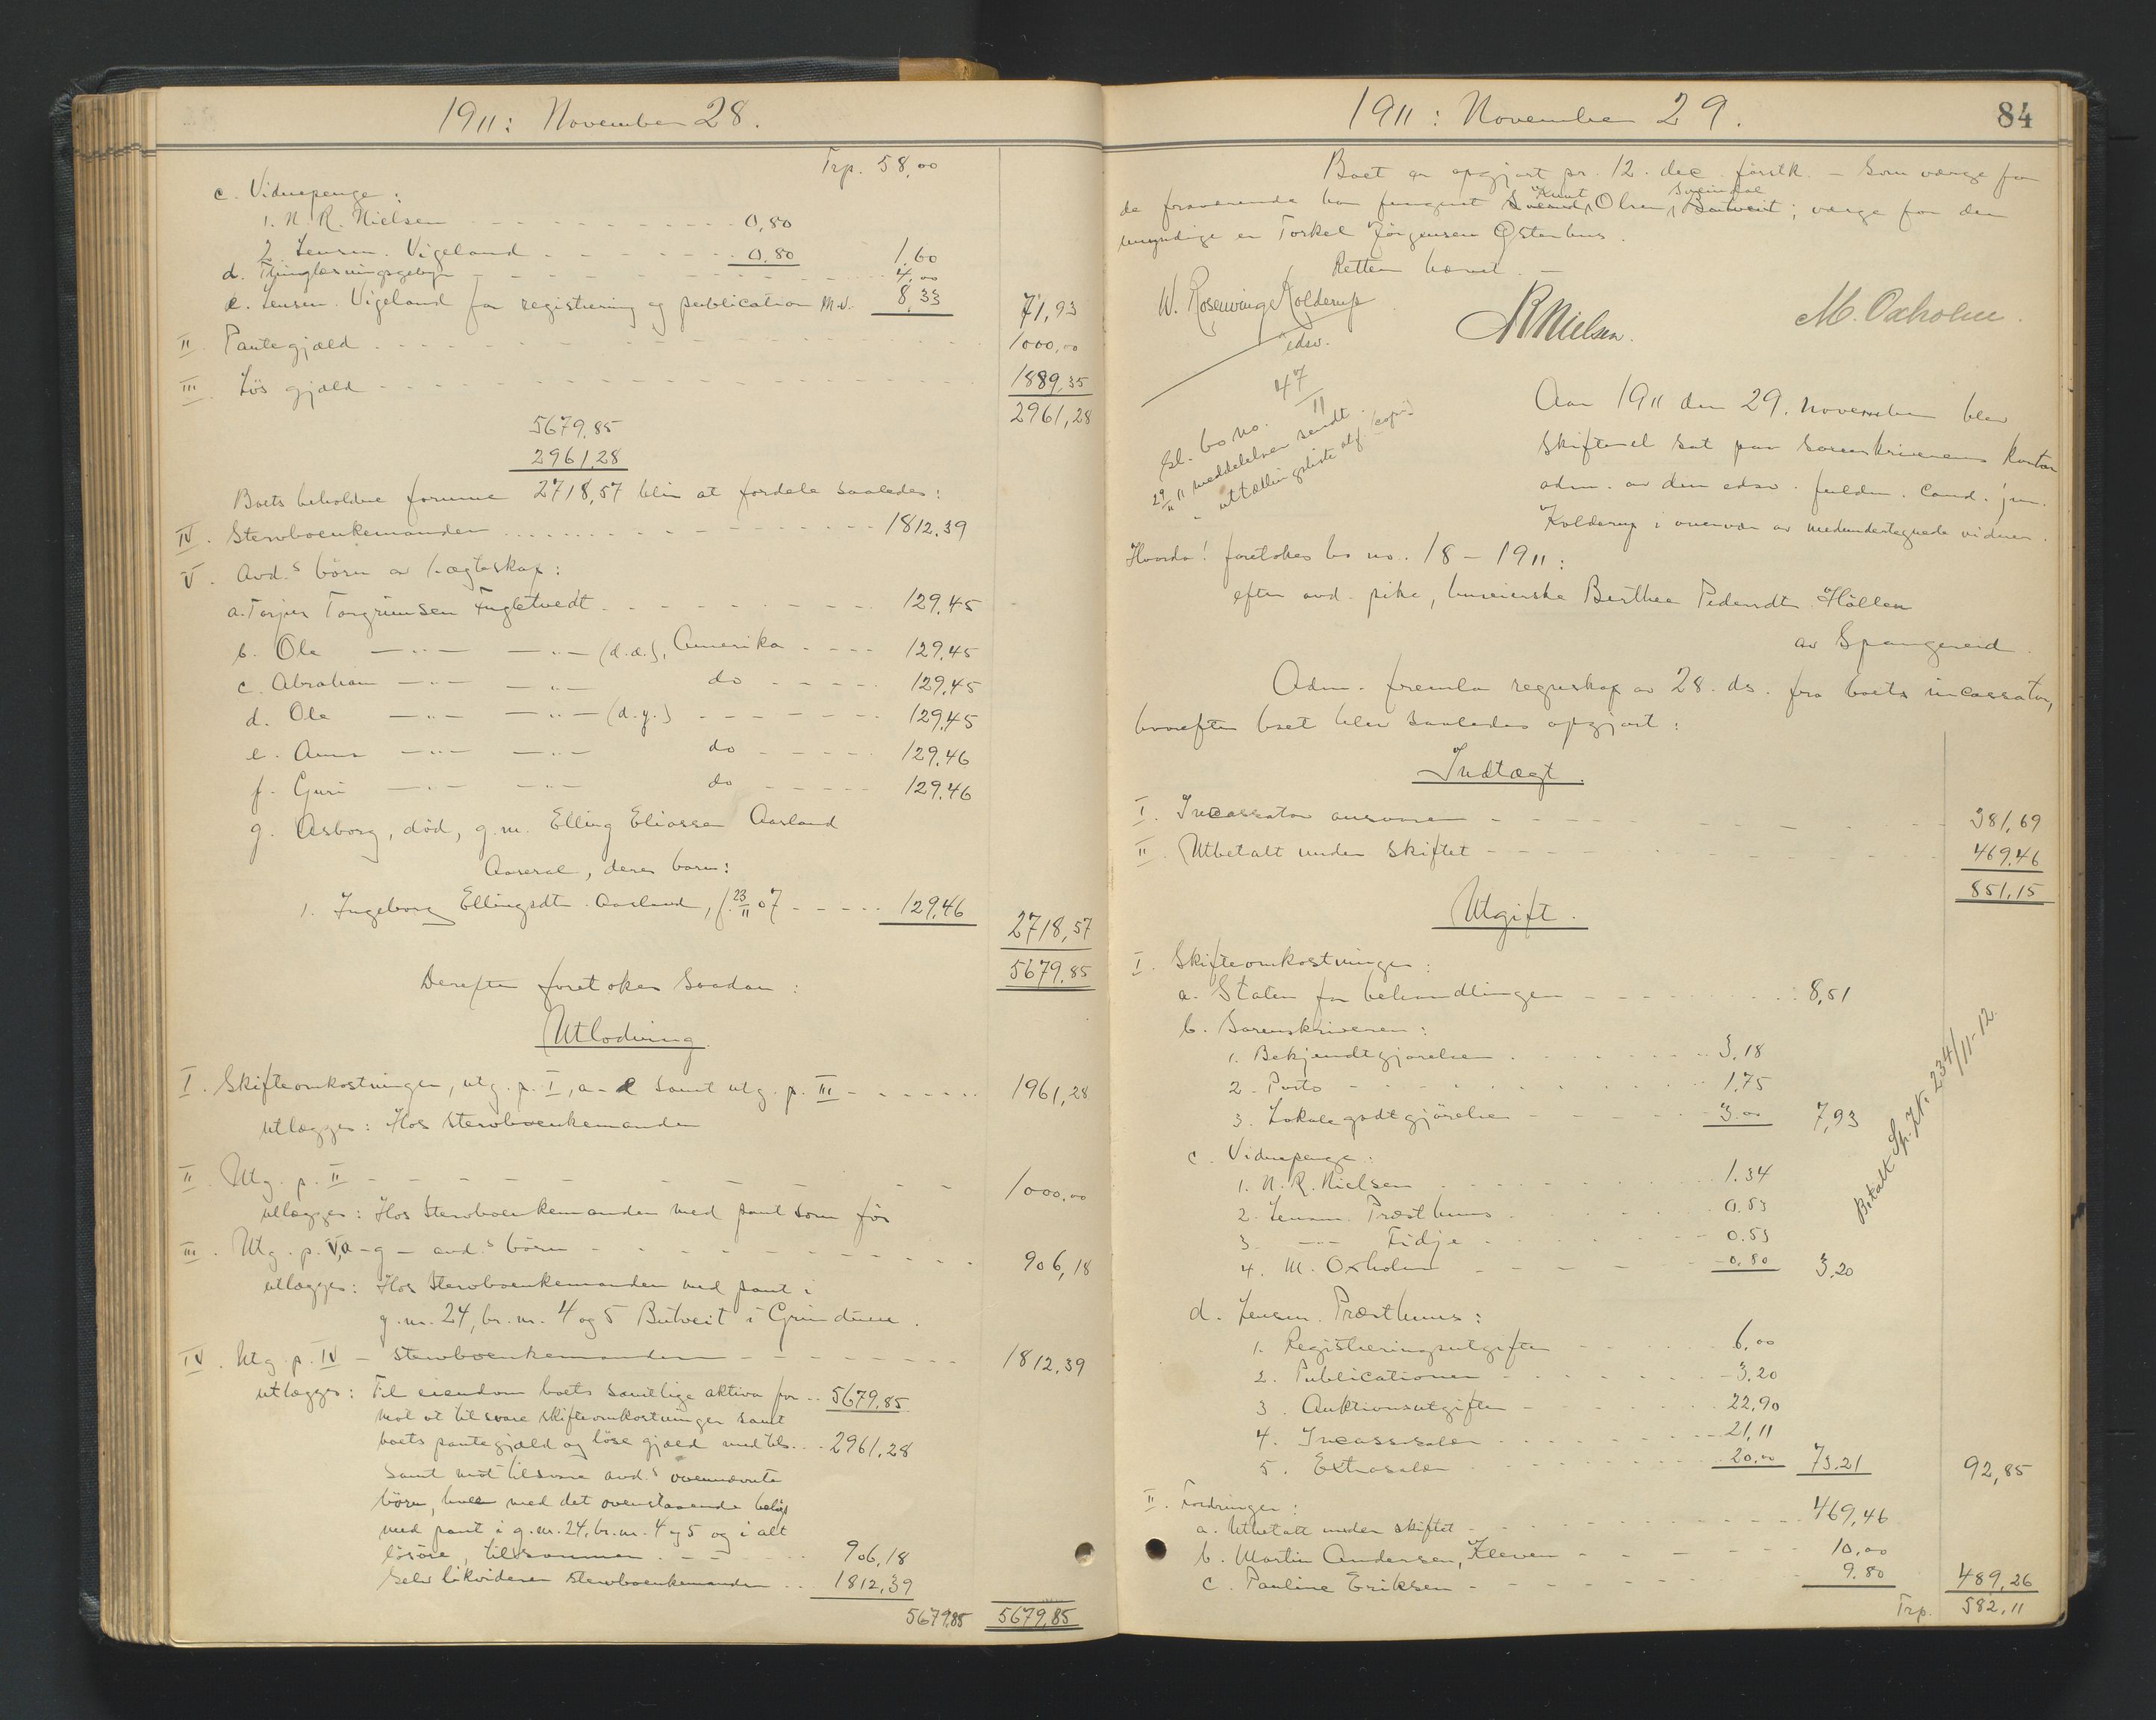 1911: November 28.
Trp. 58,00
c. Vidnepenge:
1. N. R. Nielsen 0,80
2. Lensm. Vigeland 0,80 1,60
d. Thinglæsningsgebyr 4,00
e. Lensm. Vigeland for registrering og publication m.v. 8,33 71,93
II. Pantegjæld 1000,00
III. Løs gjæld 1889,35
2961,28
5679,85
2961,28
Boets beholdne formue 2718,57 blir at fordele saaledes:
IV. Stervboenkemanden 1812,39
V. Avd.s børn av egteskap:
a. Torjus Torgrimsen Fugletvedt 129,45
b. Ole —"— —"— (d.æ.), Amerika 129,45
c. Abraham —"— —"— do 129,45
d. Ole —"— —"— (d.y.) 129,45
e. Anna —"— —"— do 129,46
f. Guri —"— —"— do 129,46
g. Asborg, død, g.m. Elling Eliassen Aasland
Aaseral, deres barn:
1. Ingeborg Ellingsdtr. Aasland, f. 23/11 07 129,46 2718,57
5679,85
Derefter foretokes saadan:
Utlodning
I. Skifteomkostninger, utg. p. I, a-e samt utg. p. III 1961,28
utlægges: Hos stervboenkemanden
II. Utg. p. II 1000,00
utlægges: Hos stervboenkemanden med pant som før
III. Utg. p. V, a-g — avd.s børn 906,18
utlægges: Hos stervboenkemanden med pant i
g.nr. 24, br.nr. 4 og 5 Butveit i Grindum.
IV. Utg. p. IV — stervboenkemanden 1812,39
utlægges: Til eiendom boets samtlige aktiva for 5679,85
mot at tilsvare skifteomkostninger samt
boets pantegjæld og løse gjæld med tils. 2961,28
samt mot tilsvare avd.s ovennævnte
børn, hver med det ovenstaaende beløp
med pant i g.nr. 24, br.nr. 4 og 5 og i alt
løsøre, tilsammen 906,18
Selv likviderer stervboenkemanden 1812,39
5679,85 5679,85
1911: November 29. 84
Boet er opgjort pr. 12. dec. førstk. — Som værge for
de fraværende har fungert Knut Olsen Butveit; værge for den
umyndige er Torkel Jørgensen Østerhus.
Retten hævet. —
W. Rosenvinge Kolderup
edsv.
NRNielsen.
M. Oxholm.
47/11
Gl. bo no.
29/11 11 meddelelser sendt
" utlodningsliste utf. (copi)
Aar 1911 den 29. november blev
skifteret sat paa sorenskriverens kontor
adm. av den edsv. fuldm. cand. jur.
Kolderup i overvær av medundertegnede vidner.
Hvorda! foretokes bo no. 18 – 1911:
efter avd. pike, huseierske Berthea Pedersdtr. Hållen
av Spangereid.
Adm. fremla regnskap av 28. ds. fra boets incassator,
hvorefter boet blev saaledes opgjort:
Indtægt.
I. Incassators ansvar 381,69
II. Utbetalt under skiftet 469,46
851,15
Utgift.
I. Skifteomkostninger:
a. Staten for behandlingen 8,51
b. Sorenskriveren:
1. Bekjendtgjørelsen 3,18
2. Porto 1,75
3. Lokalegodtgjørelse 3,00 7,93
c. Vidnepenge:
1. N. R. Nielsen 1.34
2. Lensm. Præsthuus 0.53
3. —"— Fidje 0.53
4. M. Oxholm 0,80 3,20
d. Lensm. Præsthuus:
1. Registreringsutgifter 6,00
2. Publicationen 3,20
3. Auktionsutgifter 22,90
4. Incassosalær 21,11
5. Extrasalær 20,00 73,21 92,85
Betalt Sp. J. N. 234/11-12
II. Fordringer:
a. Utbetalt under skiftet 469,46
b. Martin Andersen, Kleven 10,00
c. Pauline Eriksen 9.80 489,26
Trp. 582,11